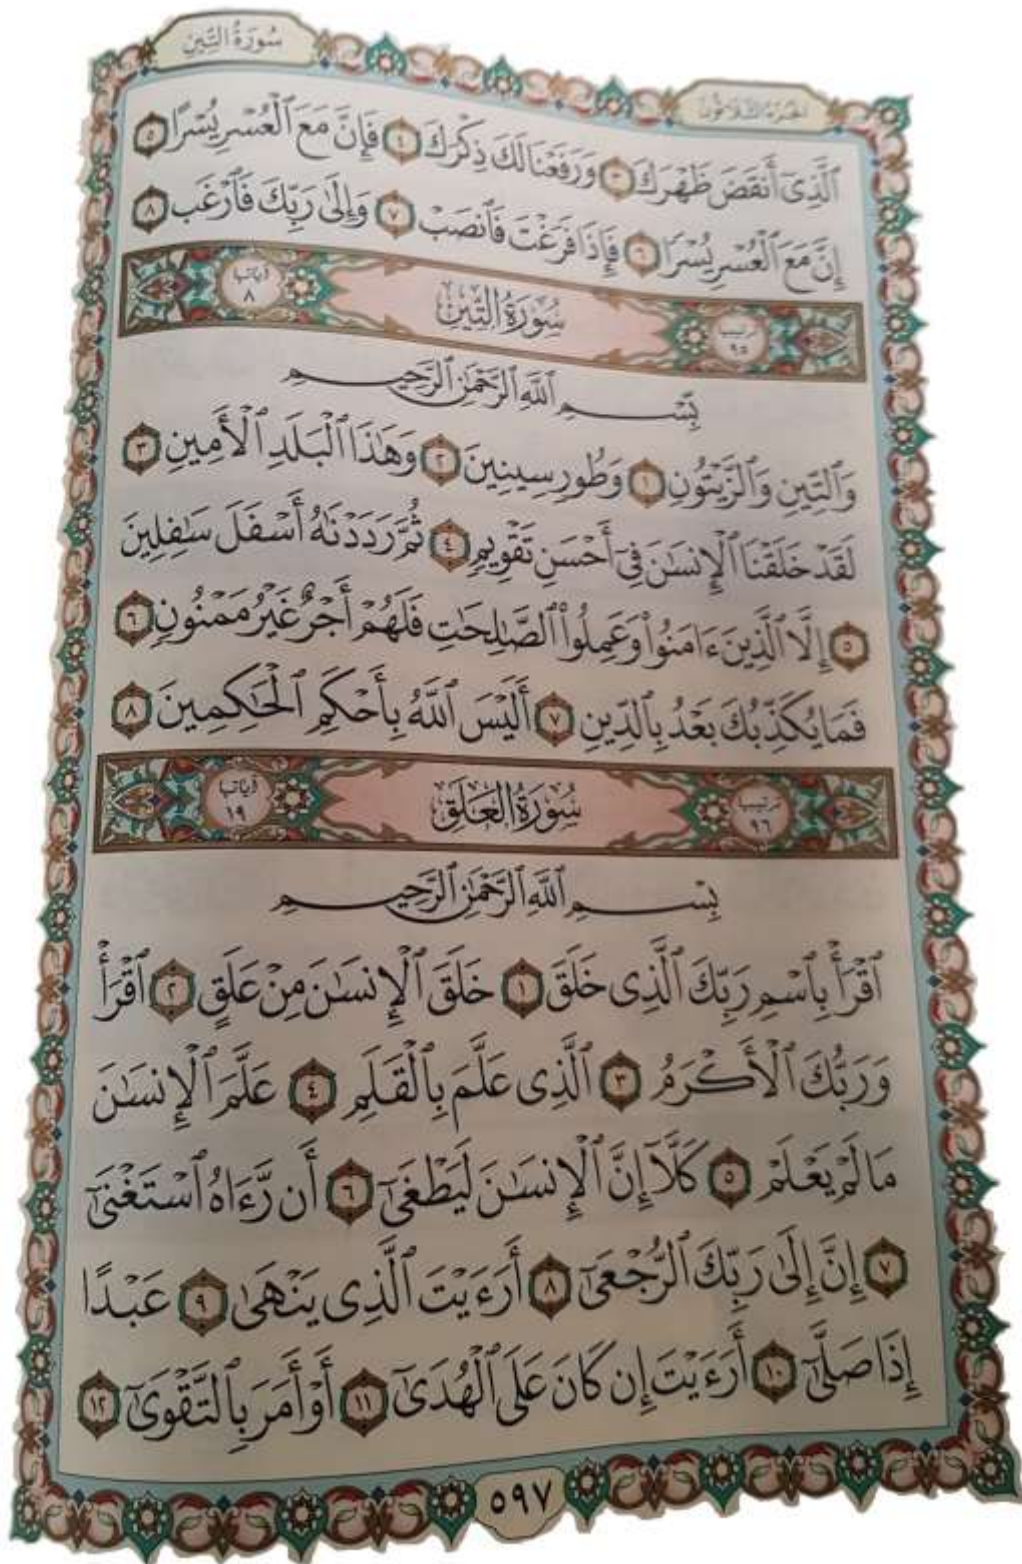 سُورَةُ التِّينِ
الجزء الثلاثون
ٱلَّذِىٓ أَنقَضَ ظَهْرَكَ ٣ وَرَفَعْنَا لَكَ ذِكْرَكَ ٤ فَإِنَّ مَعَ ٱلْعُسْرِ يُسْرًا ٥
إِنَّ مَعَ ٱلْعُسْرِ يُسْرًا ٦ فَإِذَا فَرَغْتَ فَٱنصَبْ ٧ وَإِلَىٰ رَبِّكَ فَٱرْغَب ٨
ترتيبها ٩٥ سُورَةُ التِّينِ آياتها ٨
بِّسْمِ ٱللَّهِ ٱلرَّحْمَٰنِ ٱلرَّحِيمِ
وَٱلتِّينِ وَٱلزَّيْتُونِ ١ وَطُورِ سِينِينَ ٢ وَهَٰذَا ٱلْبَلَدِ ٱلْأَمِينِ ٣
لَقَدْ خَلَقْنَا ٱلْإِنسَٰنَ فِىٓ أَحْسَنِ تَقْوِيمٍ ٤ ثُمَّ رَدَدْنَٰهُ أَسْفَلَ سَٰفِلِينَ
٥ إِلَّا ٱلَّذِينَ ءَامَنُوا۟ وَعَمِلُوا۟ ٱلصَّٰلِحَٰتِ فَلَهُمْ أَجْرٌ غَيْرُ مَمْنُونٍ ٦
فَمَا يُكَذِّبُكَ بَعْدُ بِٱلدِّينِ ٧ أَلَيْسَ ٱللَّهُ بِأَحْكَمِ ٱلْحَٰكِمِينَ ٨
ترتيبها ٩٦ سُورَةُ العَلَقِ آياتها ١٩
بِسْمِ ٱللَّهِ ٱلرَّحْمَٰنِ ٱلرَّحِيمِ
ٱقْرَأْ بِٱسْمِ رَبِّكَ ٱلَّذِى خَلَقَ ١ خَلَقَ ٱلْإِنسَٰنَ مِنْ عَلَقٍ ٢ ٱقْرَأْ
وَرَبُّكَ ٱلْأَكْرَمُ ٣ ٱلَّذِى عَلَّمَ بِٱلْقَلَمِ ٤ عَلَّمَ ٱلْإِنسَٰنَ
مَا لَمْ يَعْلَمْ ٥ كَلَّآ إِنَّ ٱلْإِنسَٰنَ لَيَطْغَىٰٓ ٦ أَن رَّءَاهُ ٱسْتَغْنَىٰٓ
٧ إِنَّ إِلَىٰ رَبِّكَ ٱلرُّجْعَىٰٓ ٨ أَرَءَيْتَ ٱلَّذِى يَنْهَىٰ ٩ عَبْدًا
إِذَا صَلَّىٰٓ ١٠ أَرَءَيْتَ إِن كَانَ عَلَى ٱلْهُدَىٰٓ ١١ أَوْ أَمَرَ بِٱلتَّقْوَىٰٓ ١٢
٥٩٧